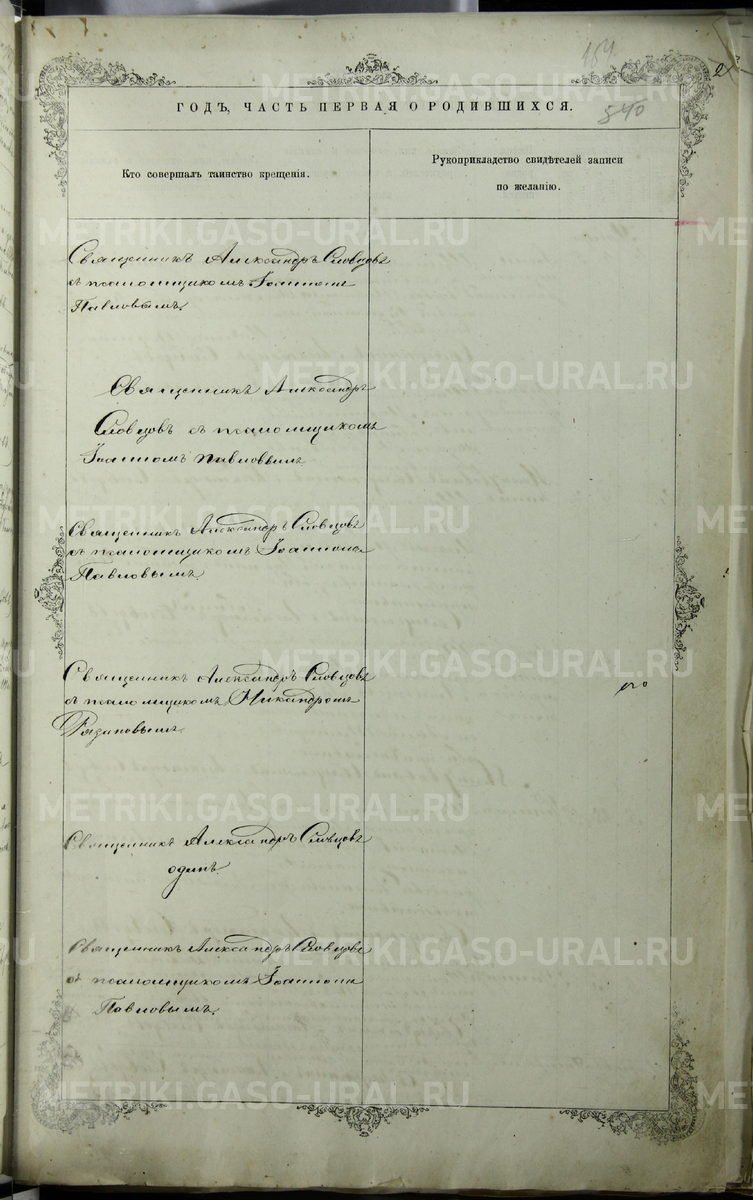 164
540
ГОДЪ, ЧАСТЬ ПЕРВАЯ О РОДИВШИХСЯ.
Кто совершалъ таинство крещенія.
Рукоприкладство свидѣтелей записи
по желанію.
Священникъ Александръ Словцовъ
съ псаломщикомъ Іоанномъ
Павловымъ.
Священникъ Александръ
Словцовъ съ псаломщикомъ
Іоанномъ Павловымъ
Священникъ Александръ Словцовъ
съ псаломщикомъ Іоанномъ
Павловымъ.
Священникъ Александръ Словцовъ
съ псаломщикомъ Никандромъ
Рязановымъ
Священникъ Александръ Словцовъ
одинъ.
Священникъ Александръ Словцовъ
съ псаломщикомъ Іоанномъ
Павловымъ.
METRIKI.GASO-URAL.RU